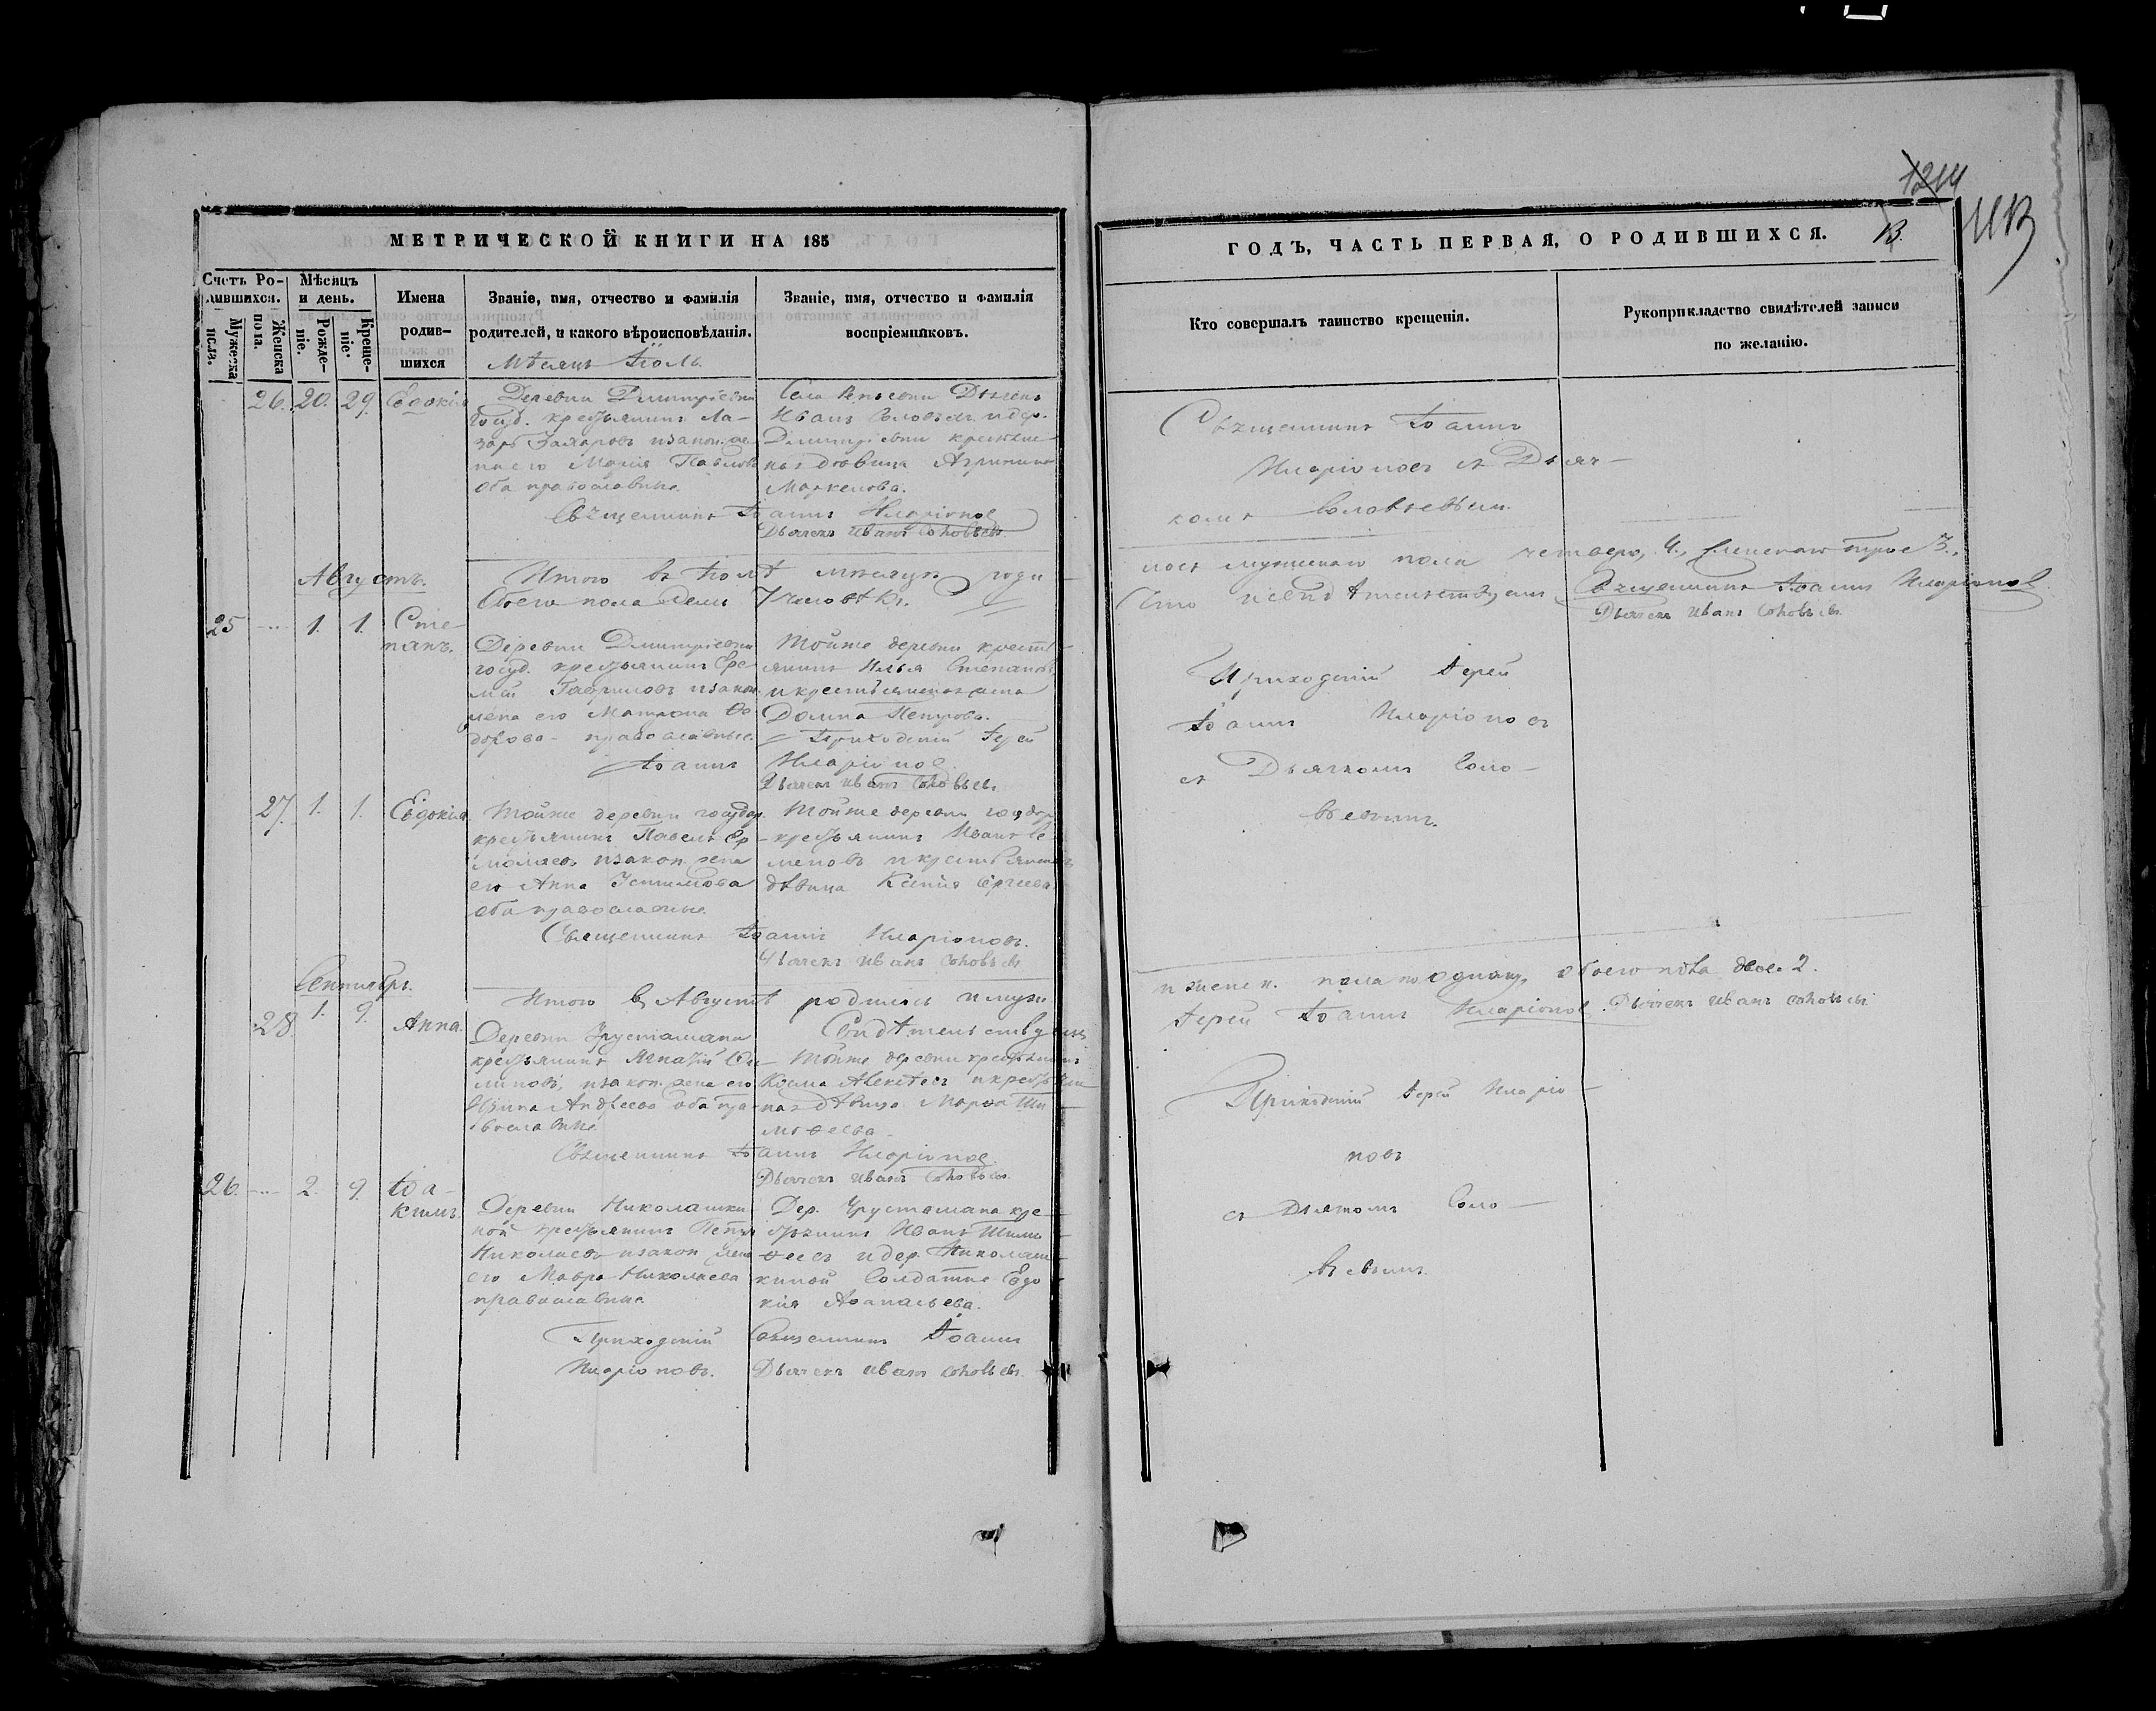 1214
МЕТРИЧЕСКОЙ КНИГИ НА 185
Счетъ Ро-
дившихся.
Мужеска
пола.
Женска
пола.
Мѣсяцъ
и день.
Рожде-
ніе.
Креще-
ніе.
Имена
родив-
шихся
Званіе, имя, отчество и фамилія
родителей, и какого вѣроисповѣданія.
Званіе, имя, отчество и фамилія
воспріемниковъ.
Мѣсяцъ Іюль.
26. 20. 29. Евдокія
Деревни Димитріевки
Госуд. крестьянинъ Ла-
зарь Захаровъ и закон. же-
на его Марія Павлова
оба православные.
Села Дьячекъ
Иванъ Соловьевъ и дер.
Димитріевки крестьян-
ская дѣвица Агрипина
Маркелова.
Священникъ Іоаннъ Иларіоновъ
Дьячекъ Иванъ Соловьевъ
Итого въ Іюлѣ мѣсяцѣ роди-
Обоего пола семь 7 человѣкъ.
Августъ.
25 1. 1. Сте-
панъ.
Деревни Димитріевки
госуд. крестьянинъ Ере-
мѣй Гавриловъ и закон.
жена его Матрона Ѳе-
дорова православные.
Тойже деревни кресть-
янинъ Илья Степановъ
и крестьянская жена
Домна Петрова.
Приходскій Іерей
Іоаннъ Иларіоновъ
Дьячекъ Иванъ Соловьевъ.
27. 1. 1. Евдокія.
Тойже деревни государ.
крестьянинъ Павелъ Ер-
молаевъ и закон. жена
его Анна Устимова
оба православные.
Тойже деревни государ.
крестьянинъ Иванъ Се-
меновъ и крестьянская
дѣвица Ксенія Сергеева.
Священникъ Іоаннъ Иларіоновъ.
Дьячекъ Иванъ Соловьевъ
Сентябрь.
Итого въ Августѣ родилось и мужс.
Свидѣтельствуемъ
28. 1. 9. Анна.
Деревни Урустамака
крестьянинъ Игнатій
и закон. жена его
Ирина Андреева оба пра-
вославные
Тойже деревни крестьянинъ
Косма Алексѣевъ и крестьян-
ская дѣвица Марѳа Ти-
моѳеева.
Священникъ Іоаннъ Иларіоновъ
Дьячекъ Иванъ Соловьевъ.
26. 2. 9. Іоа-
кимъ.
Деревни Николашки-
ной крестьянинъ Петръ
Николаевъ и закон. жена
его Мавра Николаева
православные.
Дер. Урустамака кре-
стьянинъ Иванъ Тимо-
ѳеевъ и дер. Николаш-
киной Солдатка Евдо-
кія Аѳанасьева.
Приходскій Священникъ Іоаннъ
Иларіоновъ. Дьячекъ Иванъ Соловьевъ
ГОДЪ, ЧАСТЬ ПЕРВАЯ, О РОДИВШИХСЯ.
13.
Кто совершалъ таинство крещенія.
Рукоприкладство свидѣтелей записи
по желанію.
Священникъ Іоаннъ
Иларіоновъ съ Дьяч-
комъ Соловьевымъ.
лось мужескаго пола четверо, 4., женскаго трое 3.,
Въ чемъ и свидѣтельствуемъ Священникъ Іоаннъ Иларіоновъ
Дьячекъ Иванъ Соловьевъ.
Приходскій Іерей
Іоаннъ Иларіоновъ
съ Дьячкомъ Соло-
вьевымъ.
и женск. пола по одному, обоего пола двое 2.
Іерей Іоаннъ Иларіоновъ. Дьячекъ Иванъ Соловьевъ
Приходскій Іерей Иларіо-
новъ
съ Дьячкомъ Соло-
вьевымъ.